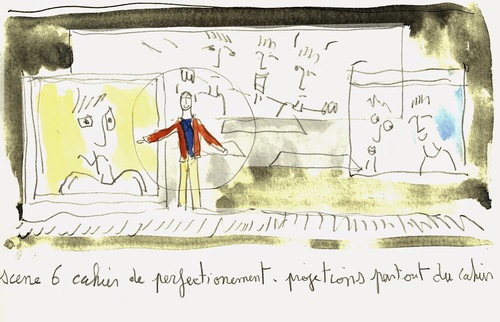 scene 6 cahier de perfectionement. projections partout du cahier